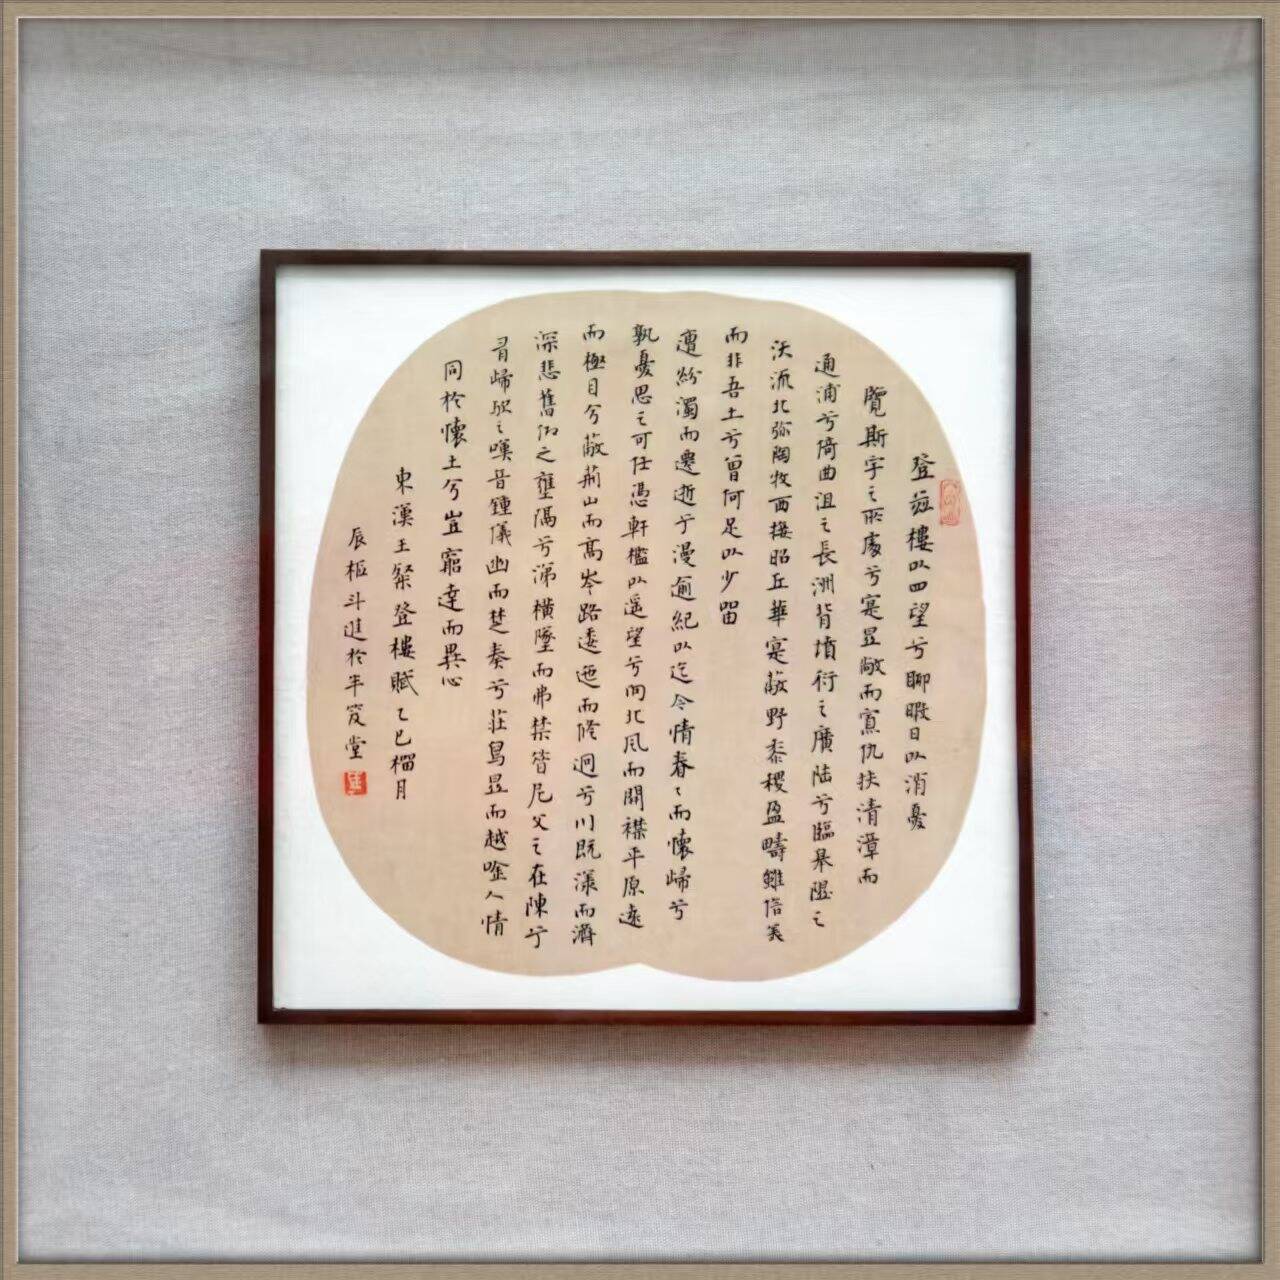 登茲樓以四望兮聊暇日以消憂
覽斯宇之所處兮寔显敞而寡仇挾清漳而
通浦兮倚曲沮之長洲背墳衍之廣陆兮臨皋隰之
沃流北弥陶牧西接昭丘華寔蔽野黍稷盈疇雖信美
而非吾土兮曾何足以少留
遭紛濁而遷逝兮漫逾紀以迄今情眷〻而懷歸兮
孰憂思之可任憑軒檻以遥望兮向北风而開襟平原遠
而極目兮蔽荊山而高岑路逶迤而修迥兮川既漾而濟
深悲舊鄉之壅隔兮涕橫墜而弗禁昔尼父之在陳兮
有歸歟之嘆音鍾儀幽而楚奏兮莊舄显而越唫人情
同於懷土兮豈窮達而異心
東漢王粲登樓賦乙巳榴月
辰樞斗進於半笈堂